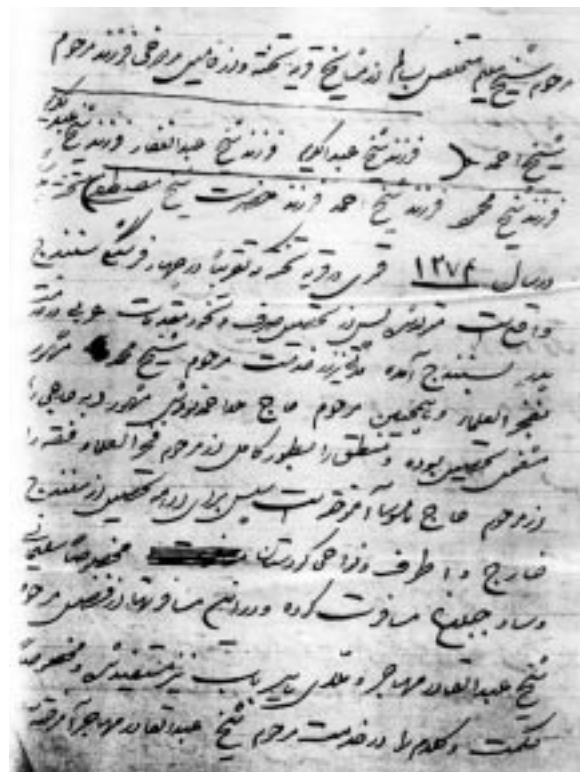 مرحوم شیخ سلیم متخلص بسالم از مشایخ قریه تخته و از فامیل مردوخی فرزند مرحوم
شیخ احمد فرزند شیخ عبدالکریم فرزند شیخ عبدالغفار فرزند شیخ
فرزند شیخ محمد فرزند شیخ احمد فرزند حضرت شیخ مصطفی تخته
در سال ۱۲۷۴ قمری در قریه تخته که تقریباً در چهار فرسنگی سنندج
واقع است متولد پس از تحصیل صرف و نحو و مقدمات عربی در خدمت
پدر بسنندج آمده در خدمت مرحوم شیخ محمد مشهور
بفخر العلماء و همچنین مرحوم حاج مشهور به حاجی
مشغول تحصیل بوده و منطق را بطور کامل از مرحوم فخر العلماء و فقه را
از مرحوم حاج آموخته است سپس برای ادامه تحصیل از سنندج
خارج و اطراف و نواحی کردستان مخصوصاً سلیمانی
و ساوجبلاغ مسافرت کرده و در این مسافرتها از فیض مرحوم
شیخ عبدالقادر مهاجر و علمای نیز مستفیض و مخصوصاً
حکمت و کلام را در خدمت مرحوم شیخ عبدالقادر مهاجر آموخته